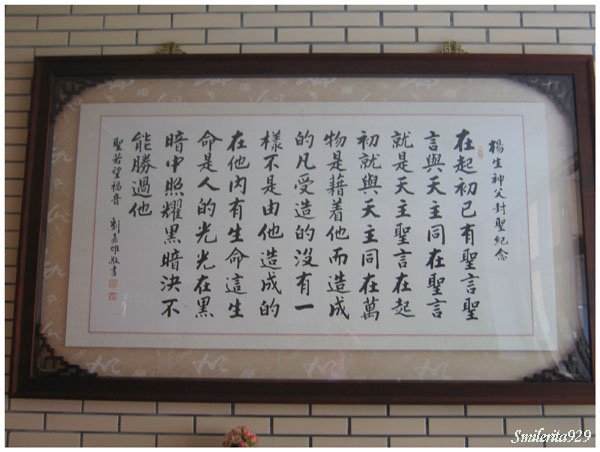 楊生神父封聖紀念
在起初已有聖言聖
言與天主同在聖言
就是天主聖言在起
初就與天主同在萬
物是藉著他而造成
的凡受造的沒有一
樣不是由他造成的
在他內有生命這生
命是人的光光在黑
暗中照耀黑暗決不
能勝過他
聖若望福音 劉嘉雄敬書
Smilerita929